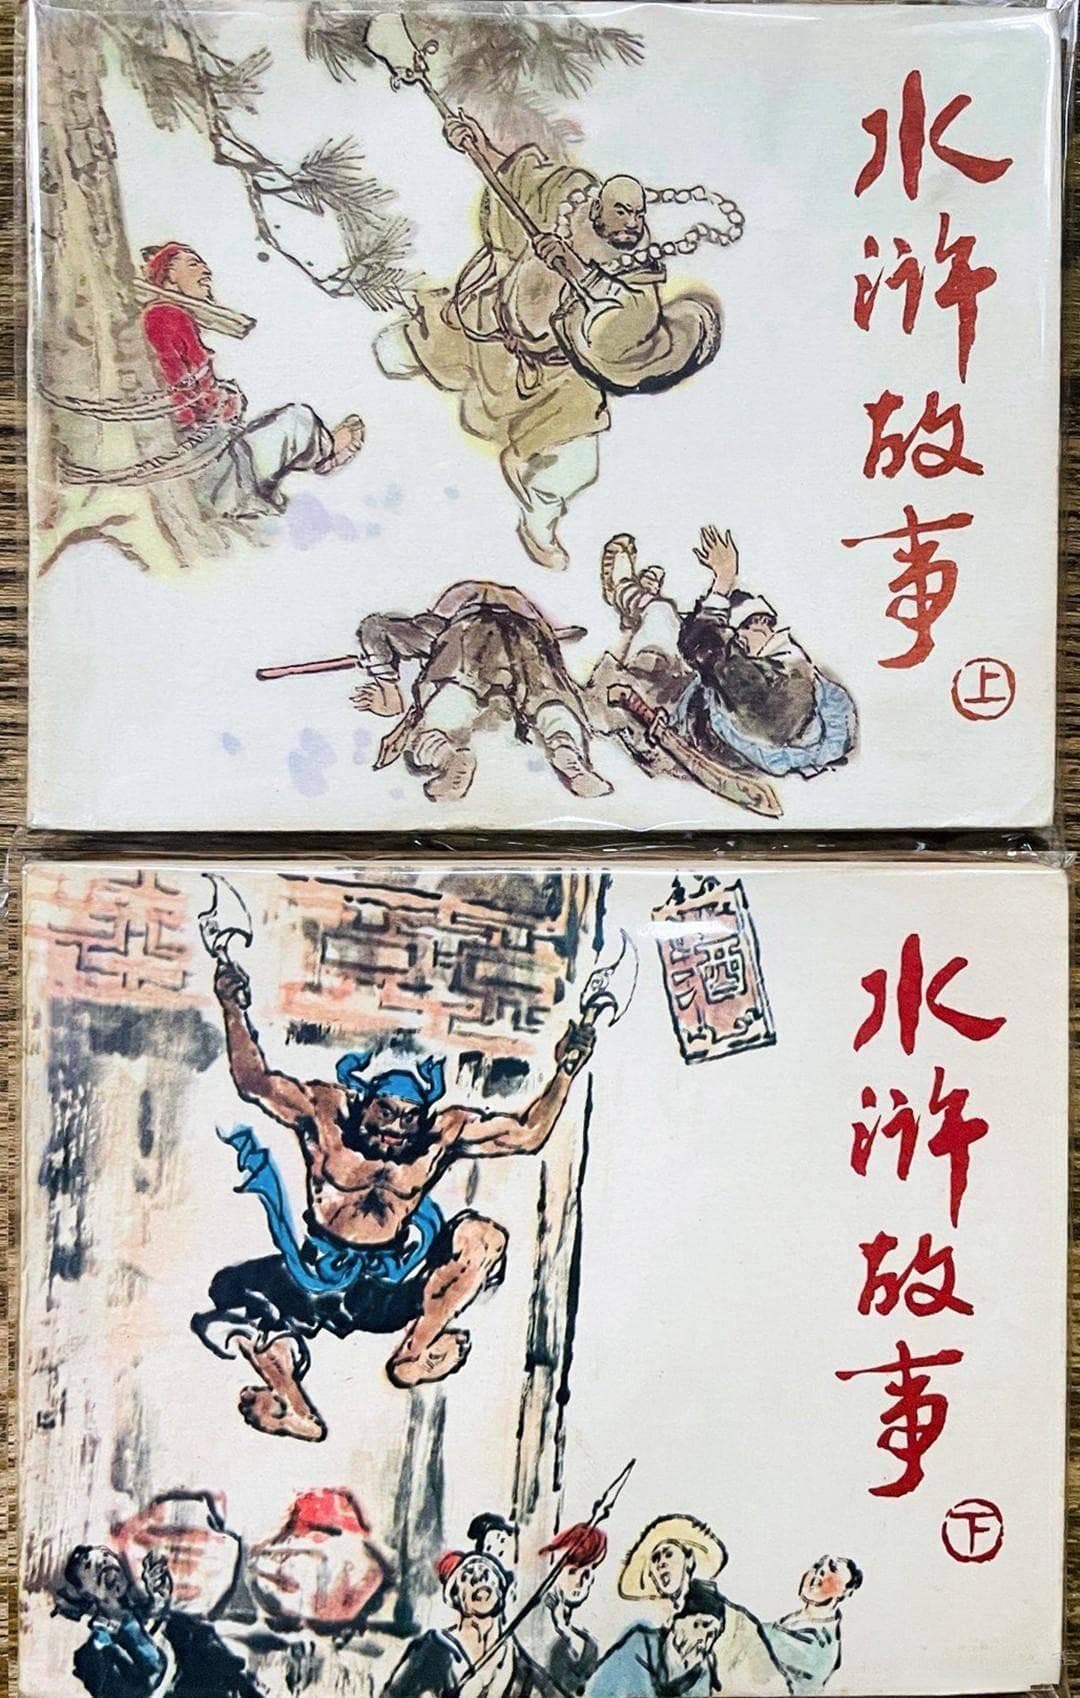 水浒故事
上
酒
水浒故事
下